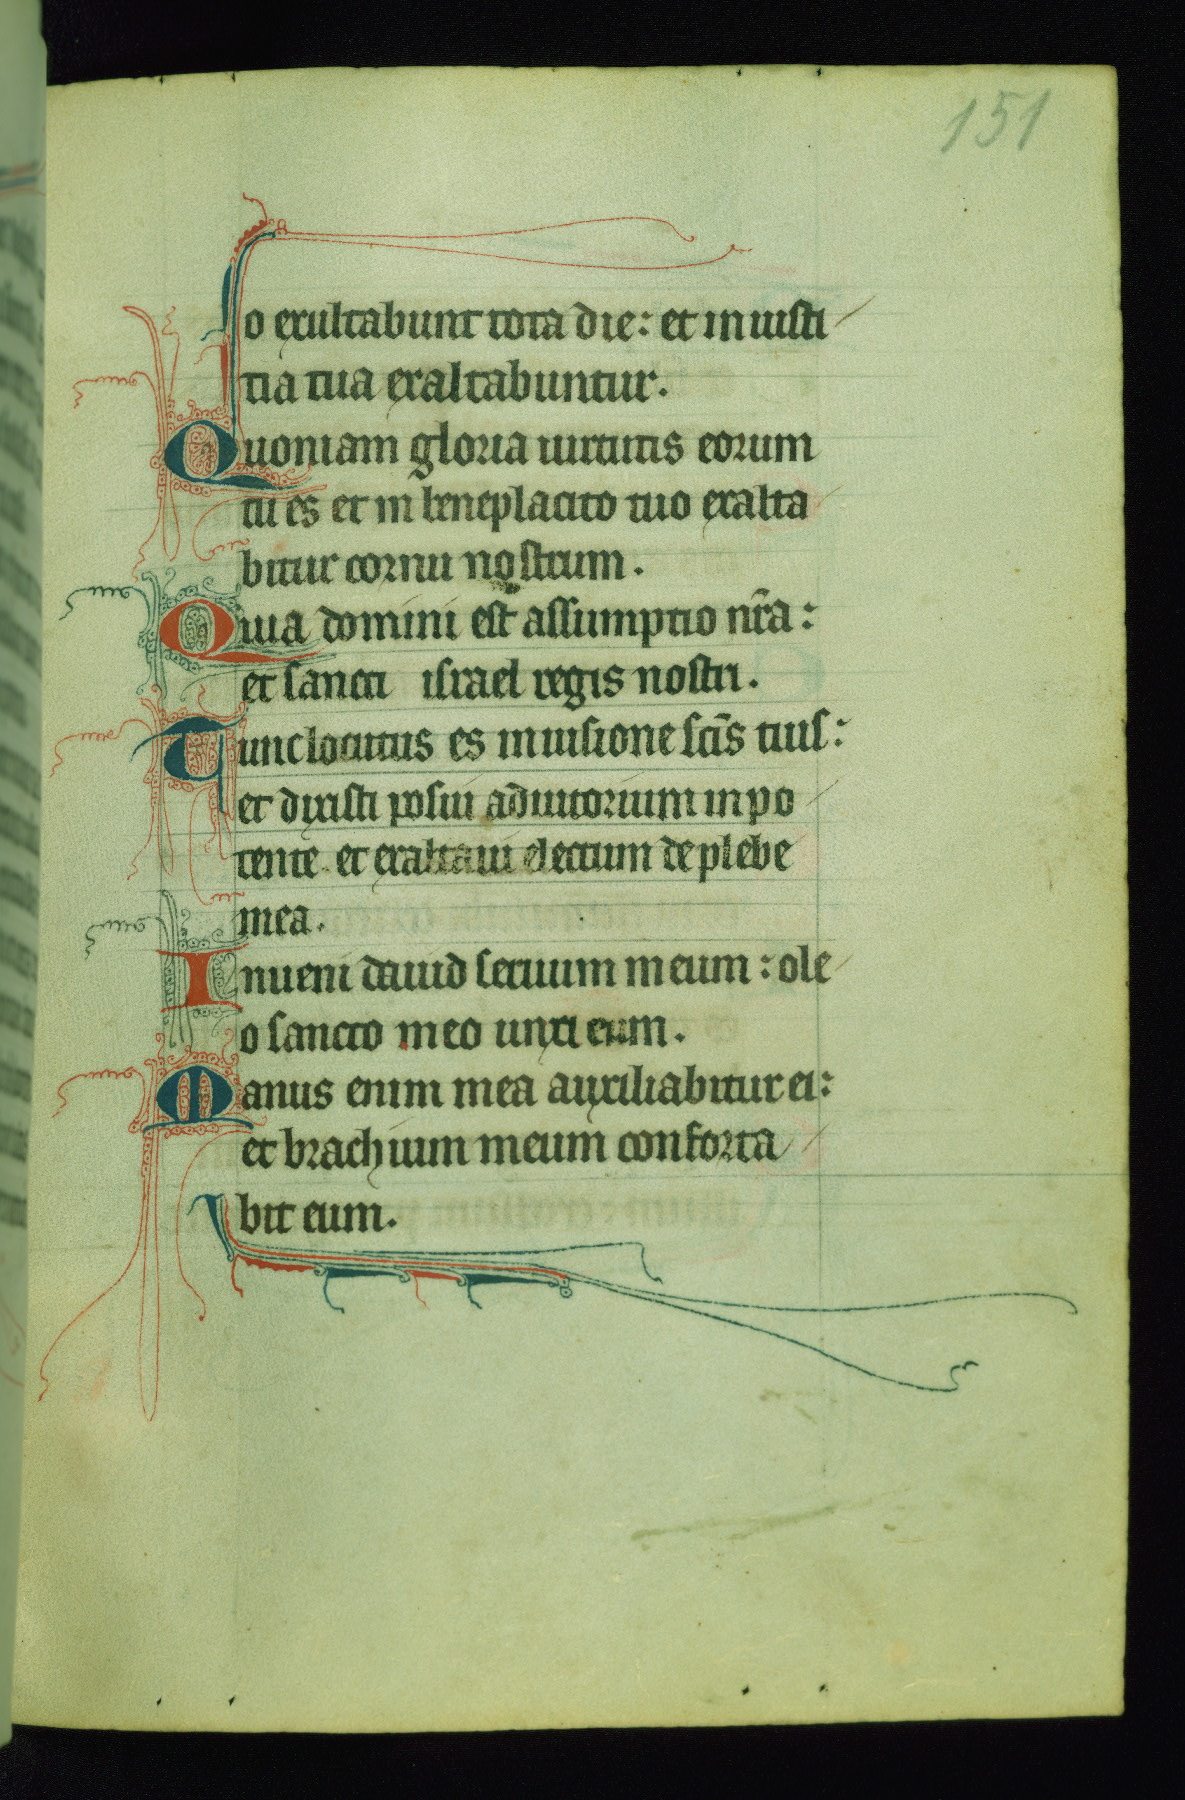 151
o exultabunt tota die: et in iusti
tia tua exaltabuntur.
Quoniam gloria uirtutis eorum
tu es et in beneplacito tuo exalta
bitur cornu nostrum.
Quia domini est assumptio nr̄a:
et sancti israel regis nostri.
Tunc locutus es in uisione sc̄is tuis:
et dixisti posui adiutorium in po
tente et exaltaui electum de plebe
mea.
Inueni dauid seruum meum: ole
o sancto meo unxi eum.
Manus enim mea auxiliabitur ei:
et brachium meum conforta
bit eum.